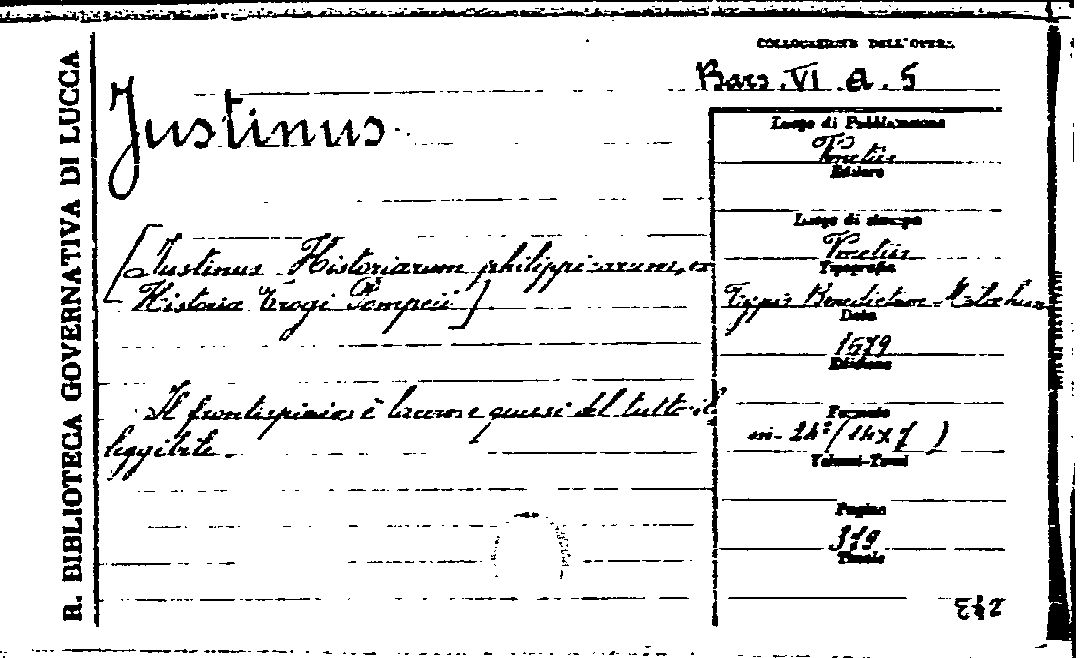 R. BIBLIOTECA GOVERNATIVA DI LUCCA
COLLOCAZIONE DELL'OPERA
Bars. VI. a. 5
Justinus
[Justinus Historiarum philippicarum, ex
Historia Trogi Pompeii]
Il frontispicio è lacero e quasi del tutto il
leggibile.
Luogo di Pubblicazione
Venetiis
Editore
Luogo di stampa
Venetiis
Tipografia
Typis Benedictum
Data
Edizione
Formato
in-24° (14x7)
Volumi-Tomi
Pagine
319
Tavole